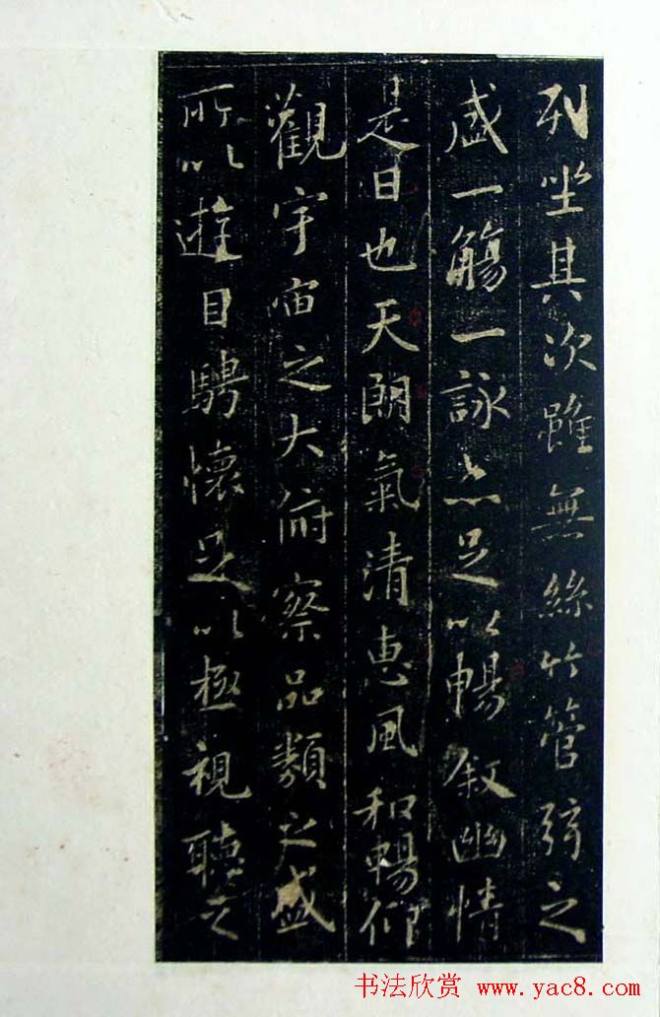 列坐其次雖無絲竹管弦之
盛一觴一詠亦足以暢叙幽情
是日也天朗氣清惠風和暢仰
觀宇宙之大俯察品類之盛
所以遊目騁懷足以極視聽之
书法欣赏 www.yac8.com